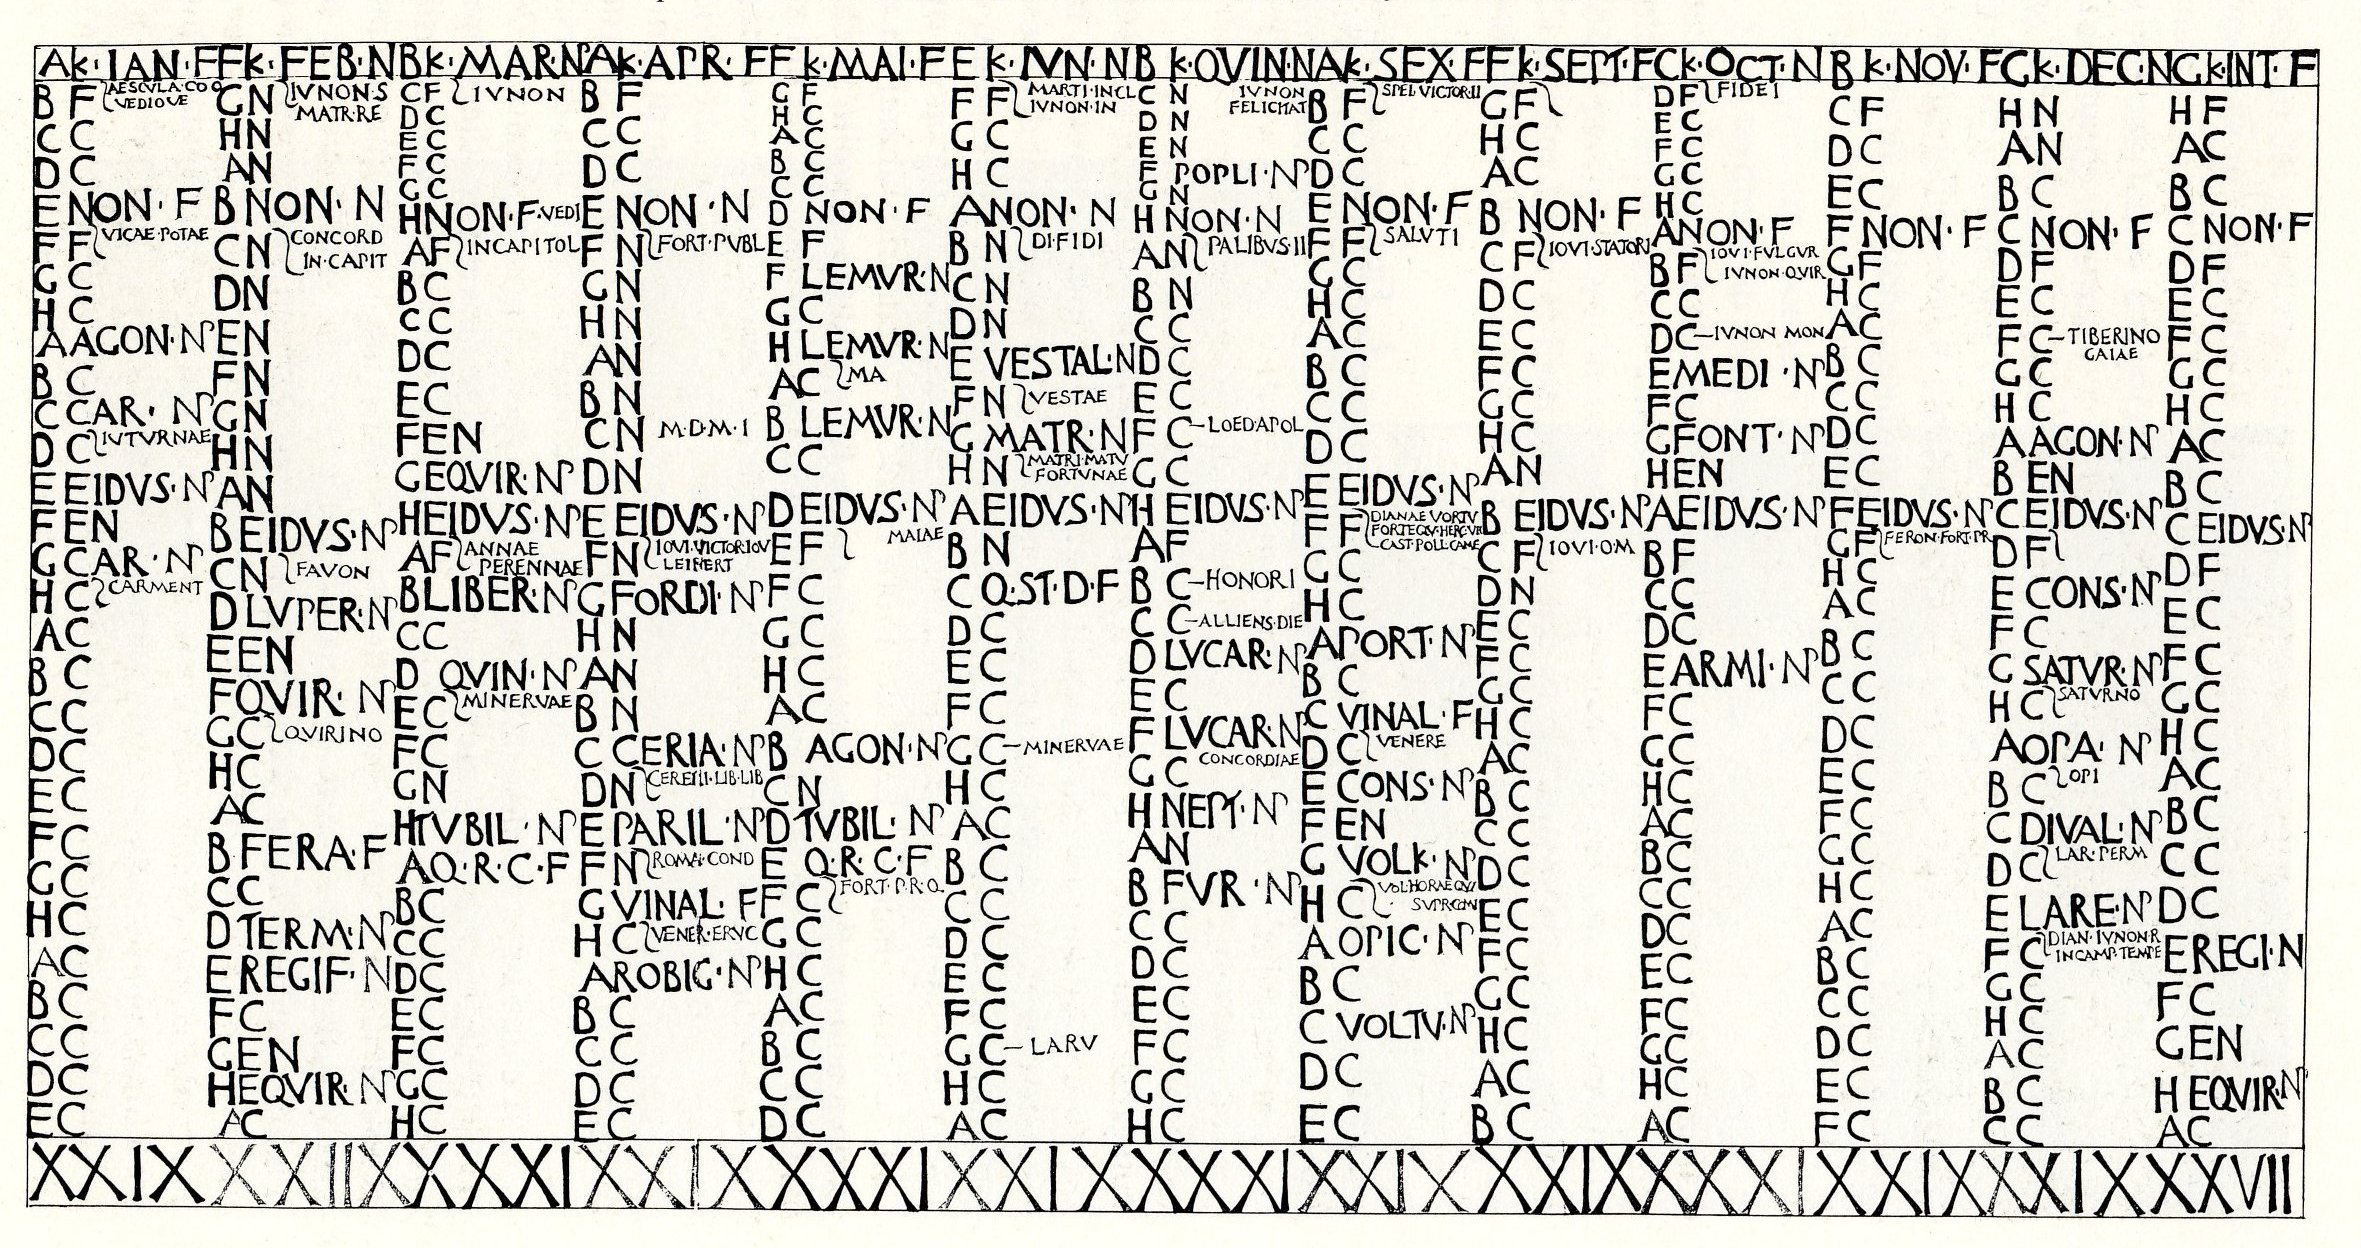 A k·IAN·F
B F AESCVLA·CO O
VEDIOVE
C C
D C
E NON·F
F F VICAE·POTAE
G C
H C
A AGON·NP
B C
C CAR·NP
D C IVTVRNAE
E EIDVS·NP
F EN
G CAR·NP
H C CARMENT
A C
B C
C C
D C
E C
F C
G C
H C
A C
B C
C C
D C
E C
XXIX
F k·FEB·N
G N IVNON·S
MATR·RE
H N
A N
B NON·N
C N CONCORD
IN·CAPIT
D N
E N
F N
G N
H N
A N
B EIDVS·NP
C N FAVON
D LVPER·NP
E EN
F QVIR·NP
G C QVIRINO
H C
A C
B FERA·F
C C
D TERM·NP
E REGIF·N
F C
G EN
H EQVIR·NP
A C
XXIIX
B k·MAR·NP
C F IVNON
D C
E C
F C
G C
H NON·F·VEDI
A F IN CAPITOL
B C
C C
D C
E C
F EN
G EQVIR·NP
H EIDVS·NP
A F ANNAE
PERENNAE
B LIBER·NP
C C
D QVIN·NP
E C MINERVAE
F C
G N
H TVBIL·NP
A Q·R·C·F
B C
C C
D C
E C
F C
G C
H C
XXXI
A k·APR·F
B F
C C
D C
E NON·N
F N FORT·PVBL
G N
H N
A N
B N
C N M·D·M·I
D N
E EIDVS·NP
F N IOVI·VICTOR·IOV
LEIBERT
G FORDI·NP
H N
A N
B N
C CERIA·NP
D N CERERI·LIB·LIB
E PARIL·NP
F N ROMA·COND
G VINAL·F
H C VENER·ERVC
A ROBIG·NP
B C
C C
D C
E C
XXIX
F k·MAI·F
G F
H C
A C
B C
C C
D NON·F
E F
F LEMVR·N
G C
H LEMVR·N
A C MA
B LEMVR·N
C C
D EIDVS·NP
E F MAIAE
F C
G C
H C
A C
B AGON·NP
C N
D TVBIL·NP
E Q·R·C·F
F C FORT·P·R·Q
G C
H C
A C
B C
C C
D C
XXXI
E k·IVN·N
F F MARTI·IN·CL
IVNON·IN
G C
H C
A NON·N
B N DI·FIDI
C N
D N
E VESTAL·N
F N VESTAE
G MATR·N
H N MATRI·MATV
FORTVNAE
A EIDVS·NP
B N
C Q·ST·D·F
D C
E C
F C
G C MINERVAE
H C
A C
B C
C C
D C
E C
F C
G C LARV
H C
A C
XXIX
B k·QVIN·N
C N IVNON
FELICITAT
D N
E N
F POPLI·NP
G N
H NON·N
A N PALIBVS·II
B N
C C
D C
E C
F C LOED·APOL
G C
H EIDVS·NP
A F
B C HONORI
C C ALLIENS·DIE
D LVCAR·NP
E C
F LVCAR·NP
G C CONCORDIAE
H NEPT·NP
A N
B FVR·NP
C C
D C
E C
F C
G C
H C
XXXI
A k·SEX·F
B F SPEI·VICTOR·II
C C
D C
E NON·F
F F SALVTI
G C
H C
A C
B C
C C
D C
E EIDVS·NP
F F DIANAE VORTV
FORT·EQV·HERC·VIC
CAST·POLL·CAME
G C
H C
A PORT·NP
B C
C VINAL·F
D C VENERE
E CONS·NP
F EN
G VOLK·NP
H C VOL·HORAE QVI
SVPR·COM
A OPIC·NP
B C
C VOLTV·NP
D C
E C
XXIX
F k·SEPT·F
G F
H C
A C
B NON·F
C F IOVI·STATORI
D C
E C
F C
G C
H C
A N
B EIDVS·NP
C F IOVI·O·M
D N
E C
F C
G C
H C
A C
B C
C C
D C
E C
F C
G C
H C
A C
B C
XXIX
C k·OCT·N
D F FIDEI
E C
F C
G C
H C
A NON·F
B F IOVI·FVLGVR
IVNON·QVIR
C C
D C IVNON MON
E MEDI·NP
F C
G FONT·NP
H EN
A EIDVS·NP
B F
C C
D C
E ARMI·NP
F C
G C
H C
A C
B C
C C
D C
E C
F C
G C
H C
A C
XXXI
B k·NOV·F
C F
D C
E C
F NON·F
G F
H C
A C
B C
C C
D C
E C
F EIDVS·NP
G F FERON·FORT·PR
H C
A C
B C
C C
D C
E C
F C
G C
H C
A C
B C
C C
D C
E C
F C
XXIX
G k·DEC·N
H N
A N
B C
C NON·F
D F
E C
F C TIBERINO
GAIAE
G C
H C
A AGON·NP
B EN
C EIDVS·NP
D F
E CONS·NP
F C
G SATVR·NP
H C SATVRNO
A OPA·NP
B C OPI
C DIVAL·NP
D C LAR·PERM
E LARE·NP
F C DIAN·IVNON·R
IN CAMP·TEMPE
G C
H C
A C
B C
C C
XXIX
G k·INT·F
H F
A C
B C
C NON·F
D F
E C
F C
G C
H C
A C
B C
C EIDVS·NP
D F
E C
F C
G C
H C
A C
B C
C C
D C
E REGI·N
F C
G EN
H EQVIR·NP
A C
XXVII